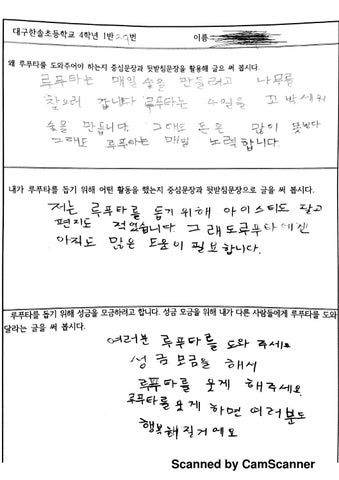 대구한솔초등학교 4학년 1반 29번 이름:
왜 루푸타를 도와주어야 하는지 중심문장과 뒷받침문장을 활용해 글을 써 봅시다.
루푸타는 매일 숯을 만들려고 나무를
찾으러 갑니다 루푸타는 4일을 꼬박 세워
숯을 만듭니다. 그래도 돈은 많이 못 번다
그래도 루푸타는 매일 노력합니다.
내가 루푸타를 돕기 위해 어떤 활동을 했는지 중심문장과 뒷받침문장으로 글을 써 봅시다.
저는 루푸타를 돕기 위해 아이스티도 팔고
편지도 적었습니다 그래도 루푸타에겐
아직도 많은 도움이 필요합니다.
루푸타를 돕기 위해 성금을 모금하려고 합니다. 성금 모금을 위해 내가 다른 사람들에게 루푸타를 도와
달라는 글을 써 봅시다.
여러분 루푸타를 도와 주세요
성금 모금을 해서
루푸타를 웃게 해주세요
루푸타를 웃게 하면 여러분도
행복해질거에요
Scanned by CamScanner